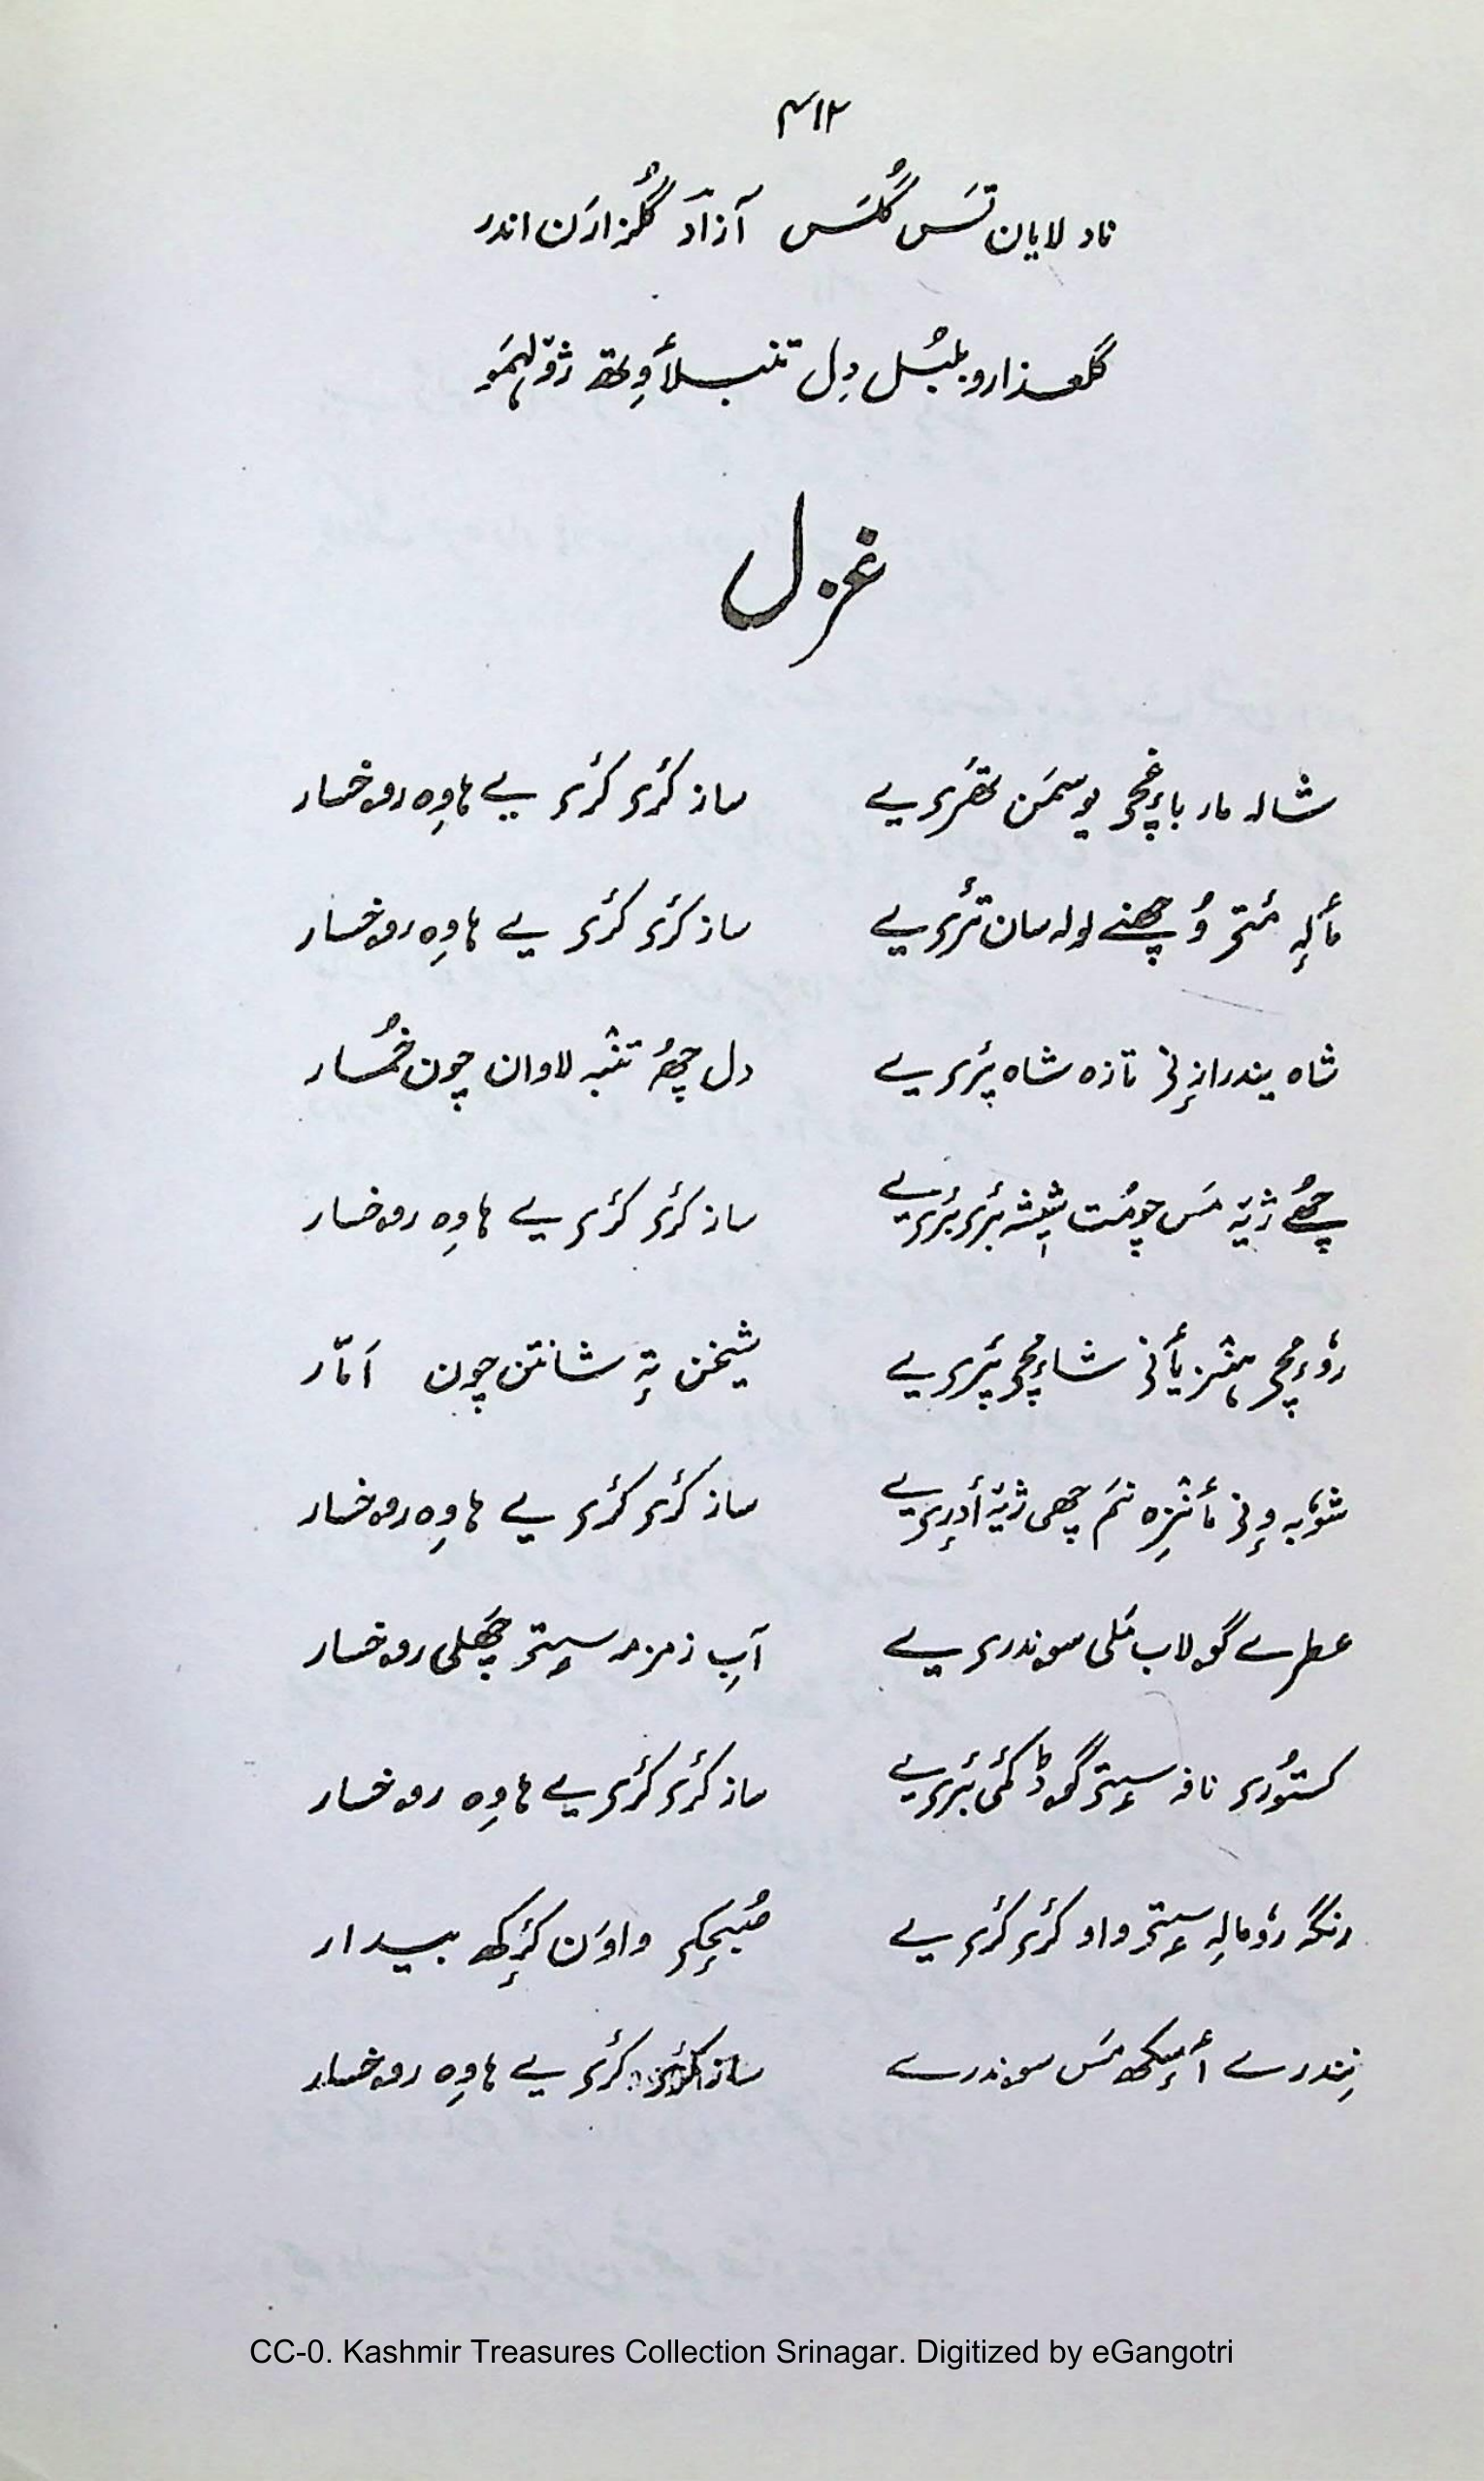 ۴۱۲
ناد لایان تَس گُلَس آزاد گُلزارَن اندر
گلعذارو بلبُل دِل تنبلٲوِتھ ژوٚلہَمو
غزل
شالہ مار باغٕچہِ یوسمَن تھٔری یے ساز کٔری کٔری یے ہاوِہ رۄخسار
مٲلہِ مٔتۍ وُچھنے لولہ سان تٔری یے ساز کٔری کٔری یے ہاوِہ رۄخسار
شاہ یندرازٕنۍ تازہ شاہ پٔری یے دل چھُ تنبہٕ لاوان چون خُمسار
چھُے ژیٚہ مَس چومُت شیٖشہٕ بٔری بٔری یے ساز کٔری کٔری یے ہاوِہ رۄخسار
روٗمٕچہِ ہنٛز یٲنۍ شامٕچہِ پٔری یے شیخن تہٕ شانتن چون اَمّار
شوٗبہٕ وٕنۍ مٲنٛزِہ نَم چھی ژیٚہ أدرِی یے ساز کٔری کٔری یے ہاوِہ رۄخسار
عطرے گولاب مَلی سۄندری یے آبِ زمزمہ سیٖتۍ چھَلی رۄخسار
کستوٗری نافہ سیٖتۍ گوڈ کٔمی بٔری یے ساز کٔری کٔری یے ہاوِہ رۄخسار
رنگہٕ روٗمالہِ سیٖتۍ واو کٔری کٔری یے صُبحٕکۍ واوَن کٔرٕکھ بیدار
نِندرے أسٕکھ مَس سۄندرے ساز کٔری کٔری یے ہاوِہ رۄخسار
CC-0. Kashmir Treasures Collection Srinagar. Digitized by eGangotri